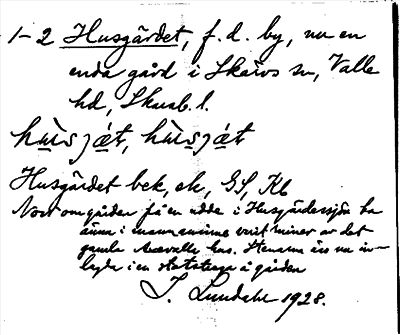 1–2 Husgärdet, f. d. by, nu en
enda gård i Skärvs sn, Valle
hd, Skarab. l.
hùsjæ̀t, hùsjæ̀t
Husgärdet bek, ek, GS, Kb
Norr om gården på en udde i Husgärdessjön ha
ännu i mannaminne varit ruiner av det
gamla hus. Stenarna äro nu in-
lagda i en å gården
J. Lundahl 1928.